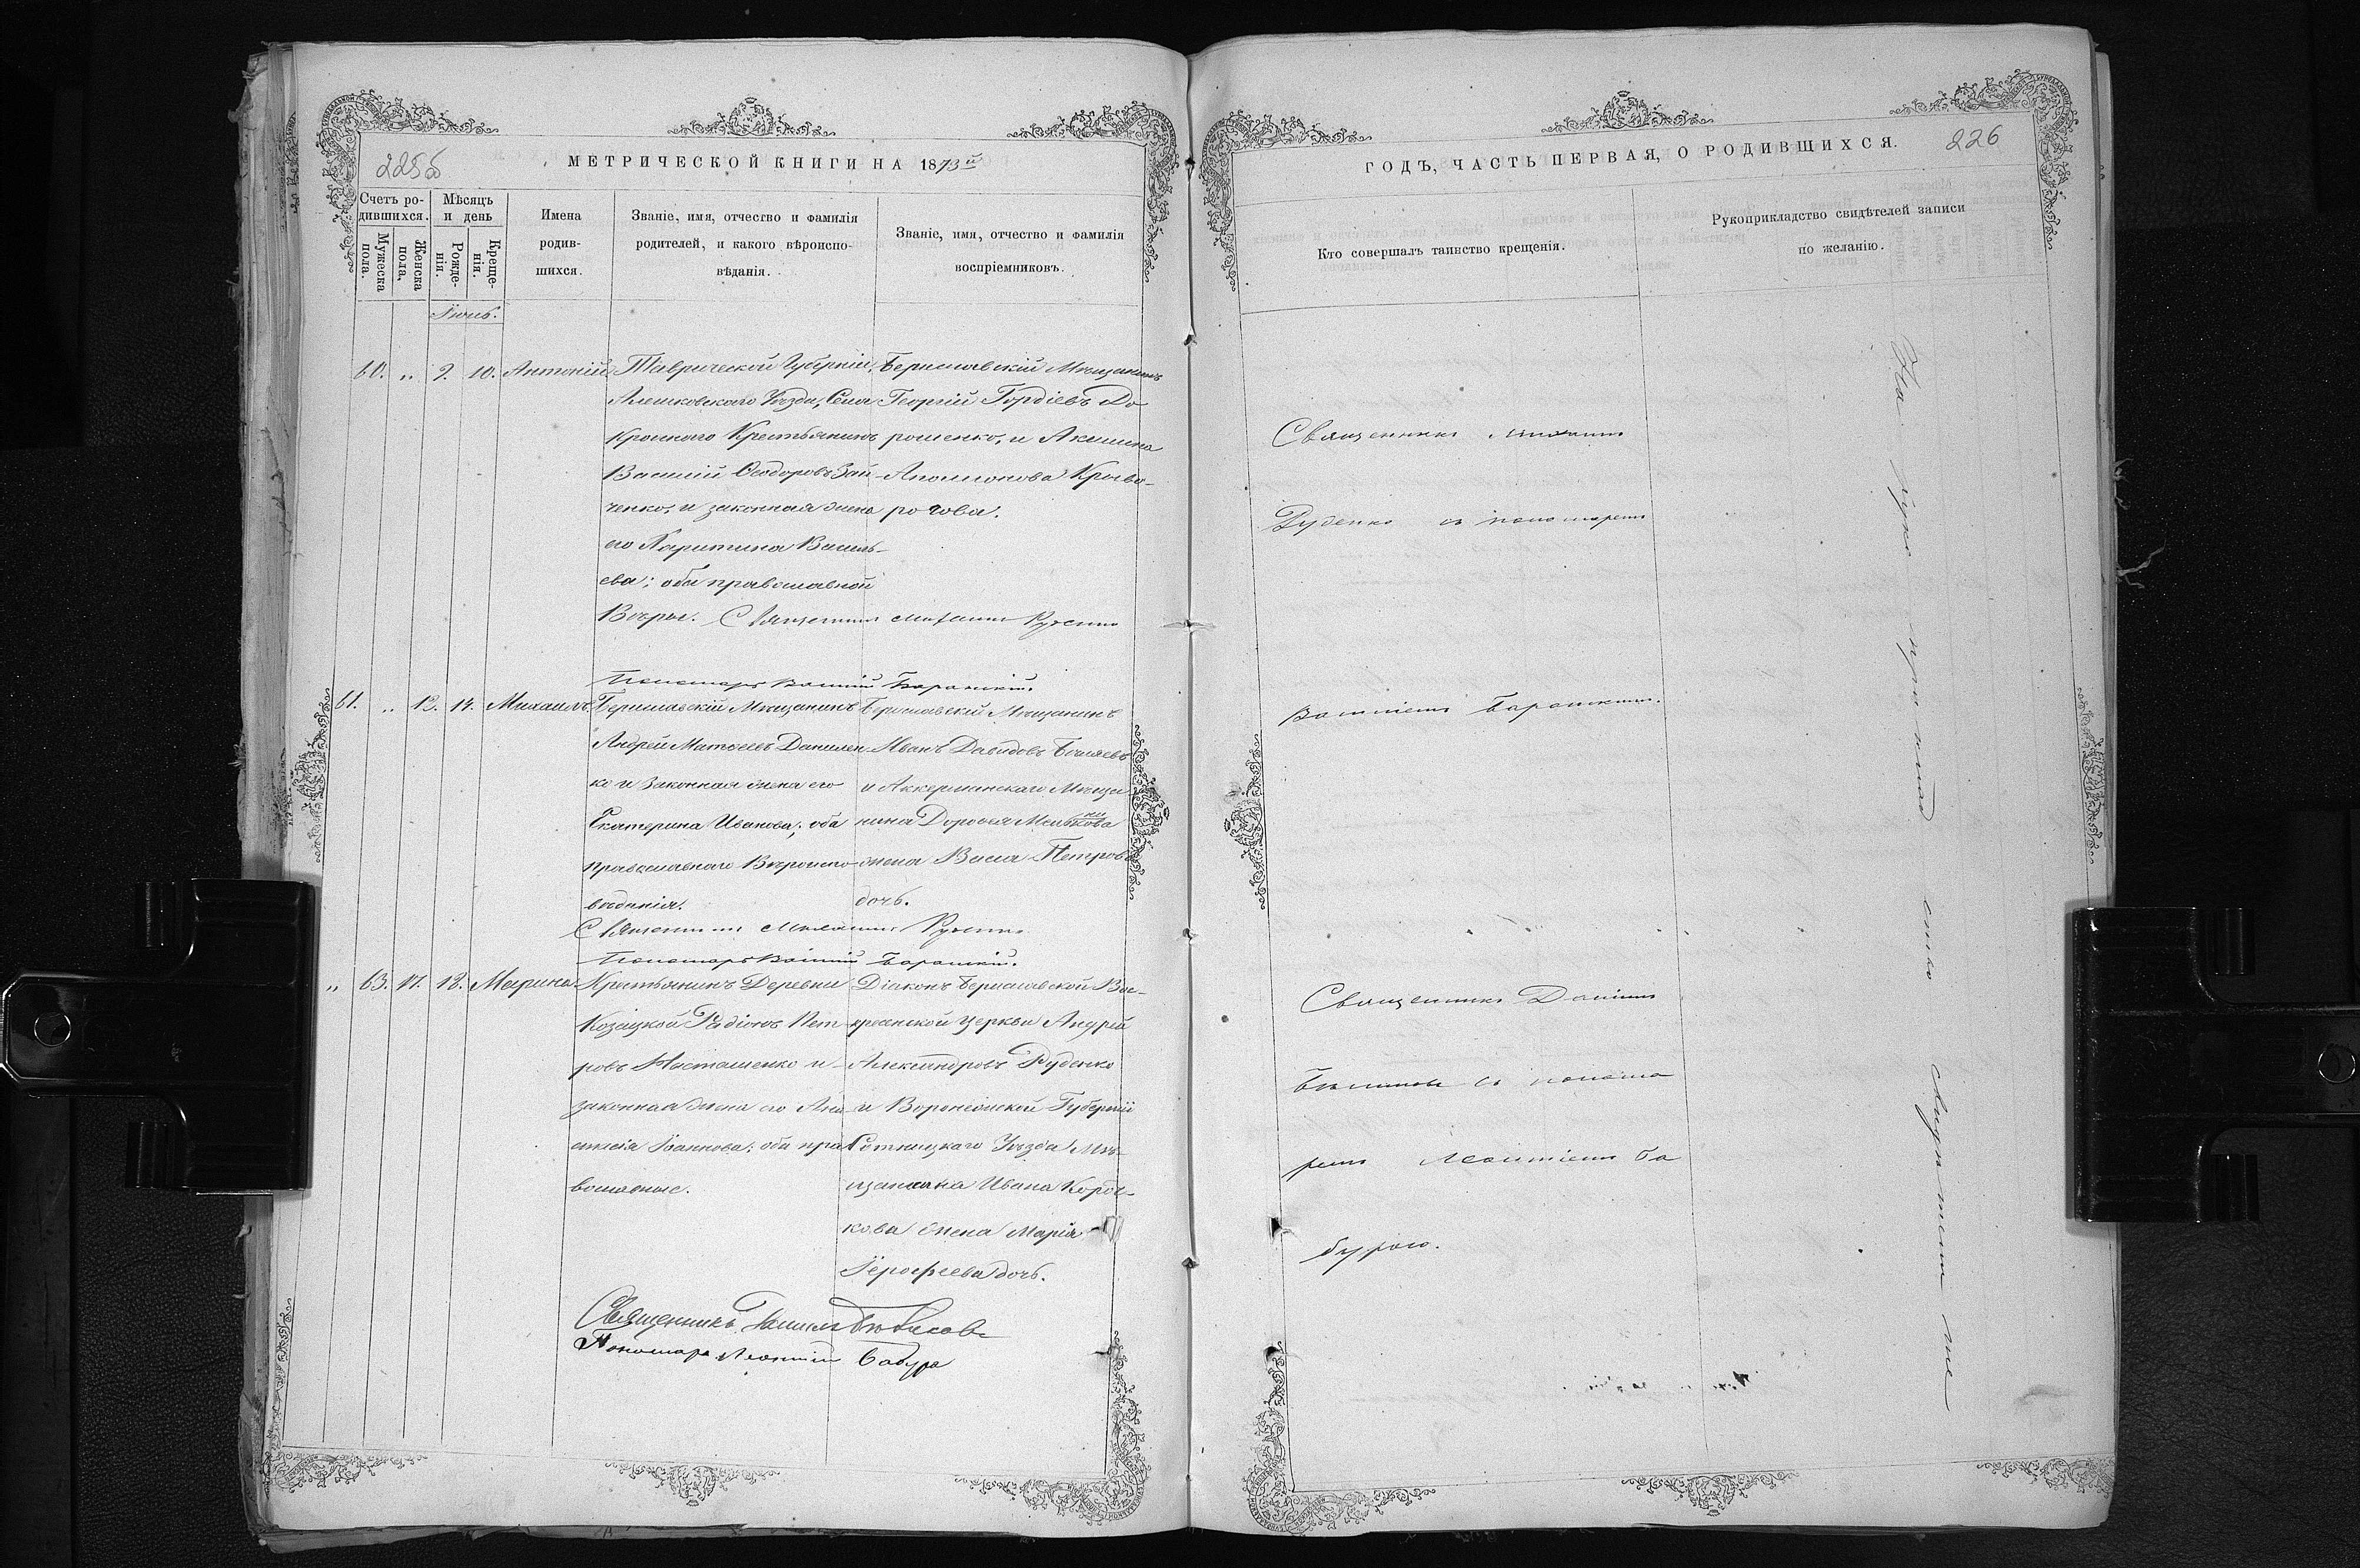 225б
МЕТРИЧЕСКОЙ КНИГИ НА 1873й
Счетъ ро-
дившихся.
Мужеска
пола.
Женска
пола,
Мѣсяцъ
и день
Рожде-
нія.
Креще-
нія.
Имена
родив-
шихся.
Званіе, имя, отчество и фамилія
родителей, и какого вѣроиспо-
вѣданія.
Званіе, имя, отчество и фамилія
воспріемниковъ.
Іюнь.
60. „ 9. 10. Антоній.
Таврической Губерніи,
Алешковскаго Уѣзда, Села
Крестьянинъ
Василій Ѳеодоровъ Зай-
ченко, и законная жена
его Харитина Василь-
ева; оба православной
Вѣры.
Бериславскій Мѣщанинъ
Георгій Гордіевъ До-
рошенко, и Акилина
Криво-
рогова.
Священникъ Михаилъ Руденко
Пономарь Баранскій.
61. „ 13. 14. Михаилъ.
Бериславскій Мѣщанинъ
Андрей Матѳеевъ Данилен-
ко и Законная жена его
Екатерина Иванова; оба
православнаго Вѣроиспо-
вѣданія.
Бериславскій Мѣщанинъ
Иванъ Давидовъ Бѣляевъ
и Аккерманскаго Мѣща-
нина Дороѳея Мельникова
жена Васса Петрова
дочь.
Священникъ Михаилъ Руденко
Пономарь Баранскій.
„ 63. 17. 18. Марина.
Крестьянинъ Деревни
Козацкой Радіонъ Пет-
ровъ Насташенко и
законная жена его Ана-
стасія Іоаннова; оба пра-
вославные.
Діаконъ Бериславской Вос-
кресенской церкви Андрей
Александровъ Руденко
и Воронежской Губерніи
Уѣзда Мѣ-
щанина Ивана Корот-
кова жена Марія
Іероѳеева дочь.
Священникъ Даніилъ Бѣлисовъ
Пономарь Леонтій Бабура
226
ГОДЪ, ЧАСТЬ ПЕРВАЯ, О РОДИВШИХСЯ.
Кто совершалъ таинство крещенія.
Рукоприкладство свидѣтелей записи
по желанію.
Священникъ Михаилъ
Руденко съ пономаремъ
Баранскимъ.
Священникъ Даніилъ
съ понома
ремъ Леонтіемъ Ба
бурою.